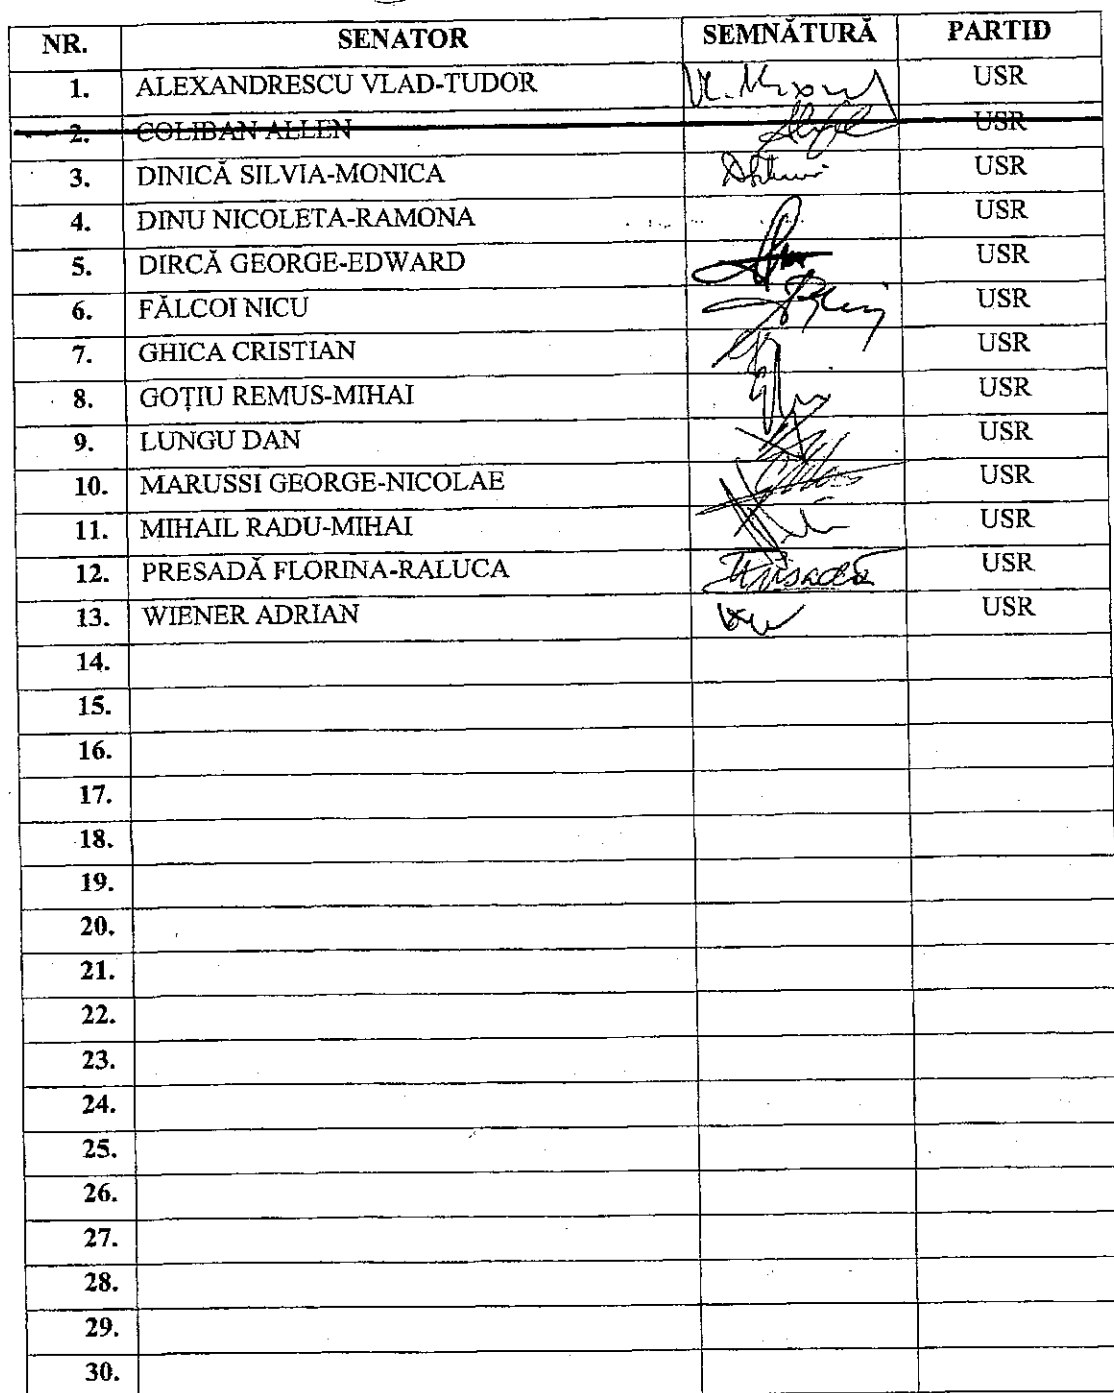 NR. SENATOR SEMNĂTURĂ PARTID
1. ALEXANDRESCU VLAD-TUDOR USR
2. COLIBAN ALLEN USR
3. DINICĂ SILVIA-MONICA USR
4. DINU NICOLETA-RAMONA USR
5. DIRCĂ GEORGE-EDWARD USR
6. FĂLCOI NICU USR
7. GHICA CRISTIAN USR
8. GOȚIU REMUS-MIHAI USR
9. LUNGU DAN USR
10. MARUSSI GEORGE-NICOLAE USR
11. MIHAIL RADU-MIHAI USR
12. PRESADĂ FLORINA-RALUCA USR
13. WIENER ADRIAN USR
14.
15.
16.
17.
18.
19.
20.
21.
22.
23.
24.
25.
26.
27.
28.
29.
30.